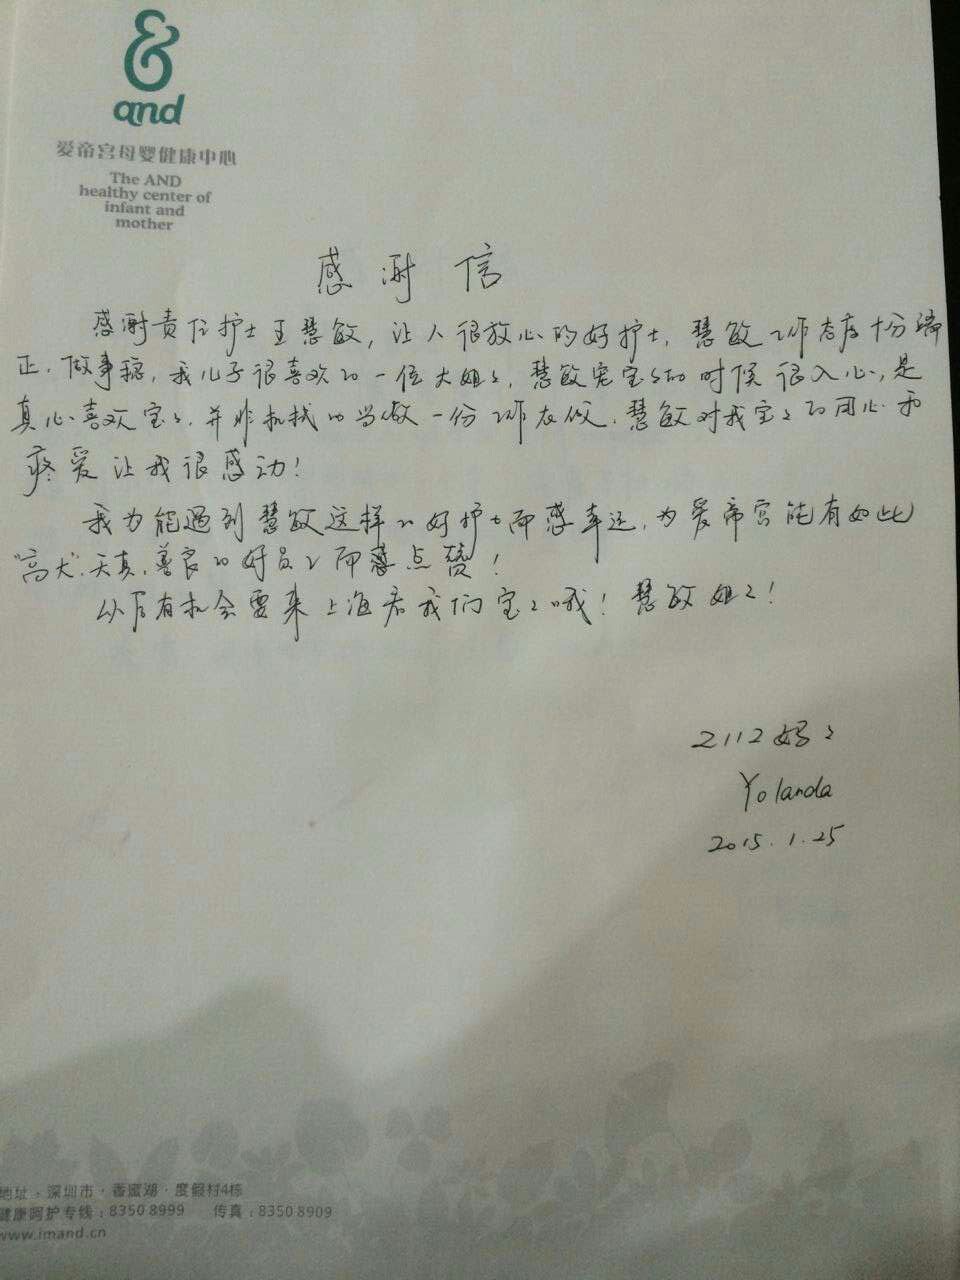 and
爱帝宫母婴健康中心
The AND
healthy center of
infant and
mother
感谢信
感谢责任护士王慧敏，让人很放心的好护士，慧敏工作态度十分端
正，做事稳，我儿子很喜欢的一位大姐〻，慧敏宠宝〻的时候很入心，是
真心喜欢宝〻，并非机械的当做一份工作在做，慧敏对我宝〻的用心和
疼爱让我很感动！
我为能遇到慧敏这样的好护士而感幸运，为爱帝宫能有如此
"高大"、天真、善良的好员工而点赞！
以后有机会要来上海看我们宝〻哦！慧敏姐〻！
2112妈〻
Yolanda
2015.1.25
地址：深圳市·香蜜湖·度假村4栋
健康呵护专线：8350 8999 传真：8350 8909
www.imand.cn